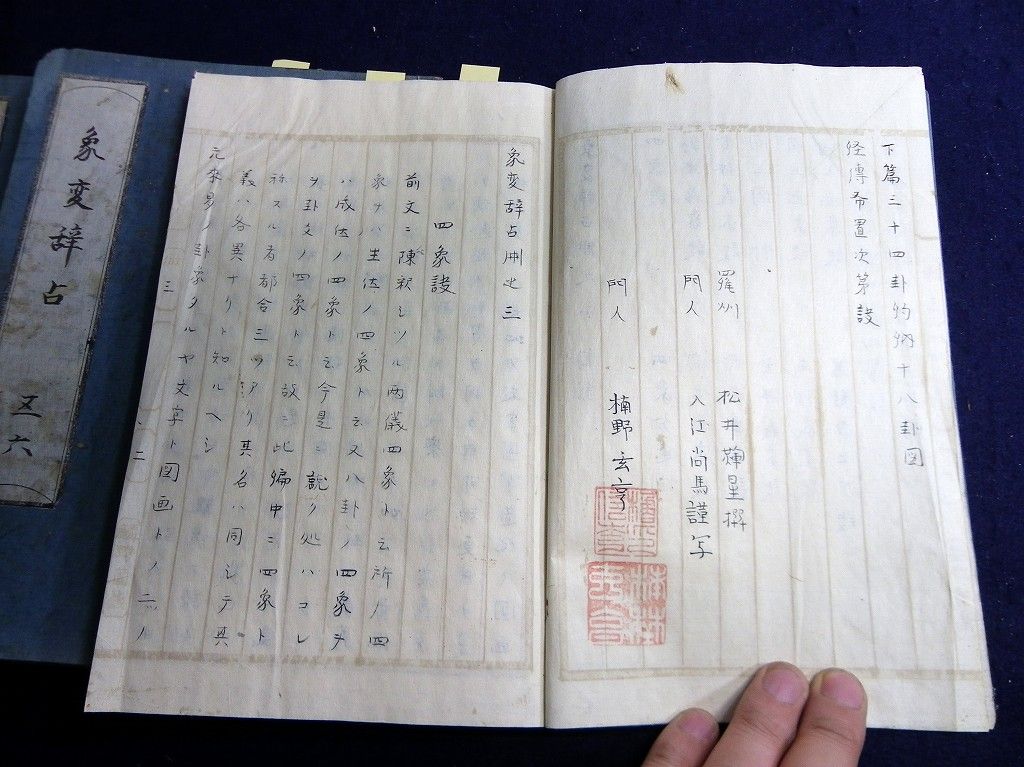 下篇三十四卦約十八卦図
経傳布置次第説
羅州 松井輝星撰
門人 入江尚馬謹写
門人 楠野玄亨
象変辞占冊之三
四象説
前文ニ陳釈シツル両儀四象ト云所ノ四
象ナハ生体ノ四象ト云又八卦ノ四象ヲ
ハ成体ノ四象ト云今是ニ説ク処ハコレ
ヲ卦爻ノ四象ト云故ニ此編中ニ四象ト
称スル者都合三ツアリ其名ハ同シテ其
義ハ各異ナリト知ルヘシ
元来易ノ卦象タルヤ文字ト図画トノ二ノ
三
二
象変辞占
五六